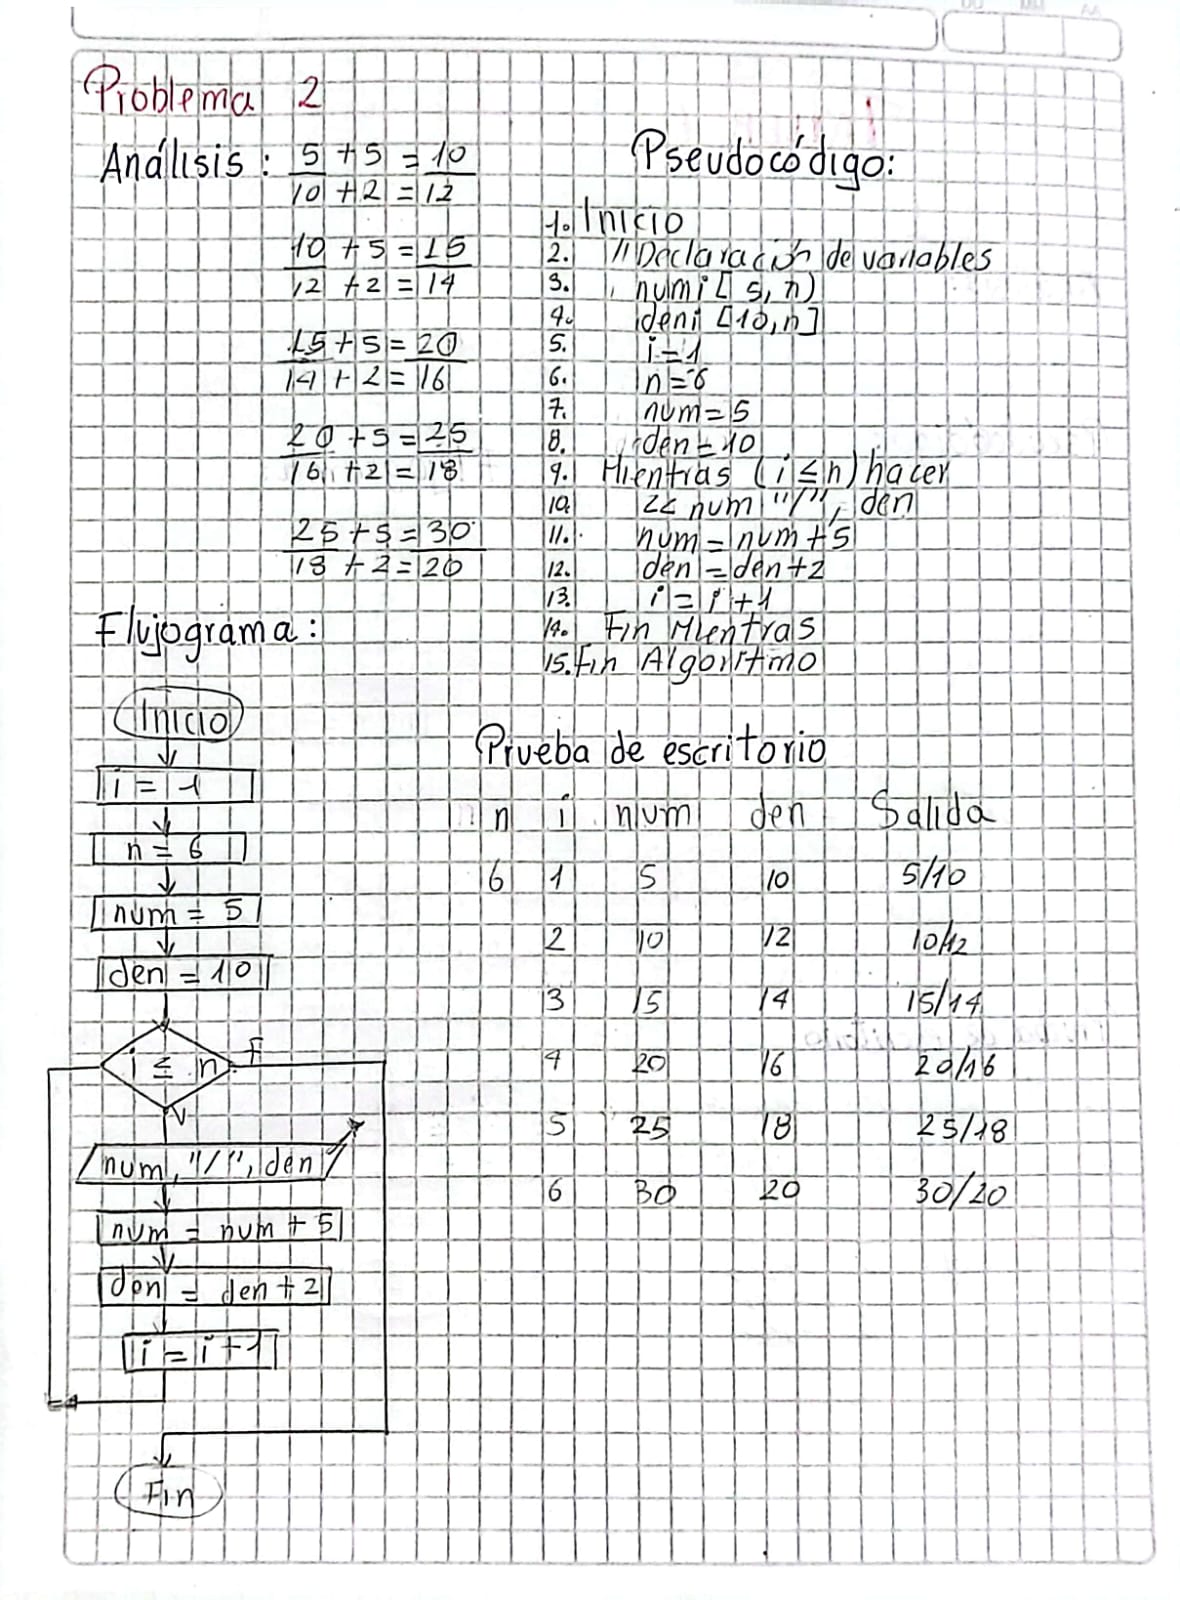 Problema 2
Análisis:
5 + 5 = 10
10 + 2 = 12
10 + 5 = 15
12 + 2 = 14
15 + 5 = 20
14 + 2 = 16
20 + 5 = 25
16 + 2 = 18
25 + 5 = 30
18 + 2 = 20
Pseudocódigo:
1. Inicio
2. //Declaración de variables
3. numi[5,n)
4. deni [10,n]
5. i=1
6. n=6
7. num=5
8. den=10
9. Mientras (i≤n) hacer
10. << num "/", den
11. num = num+5
12. den = den+2
13. i = i+1
14. Fin Mientras
15. Fin Algoritmo
Flujograma:
Inicio
i = 1
n = 6
num = 5
den = 10
i ≤ n
F
V
num, "/", den
num = num + 5
den = den + 2
i = i + 1
Fin
Prueba de escritorio
n i num den Salida
6 1 5 10 5/10
2 10 12 10/12
3 15 14 15/14
4 20 16 20/16
5 25 18 25/18
6 30 20 30/20